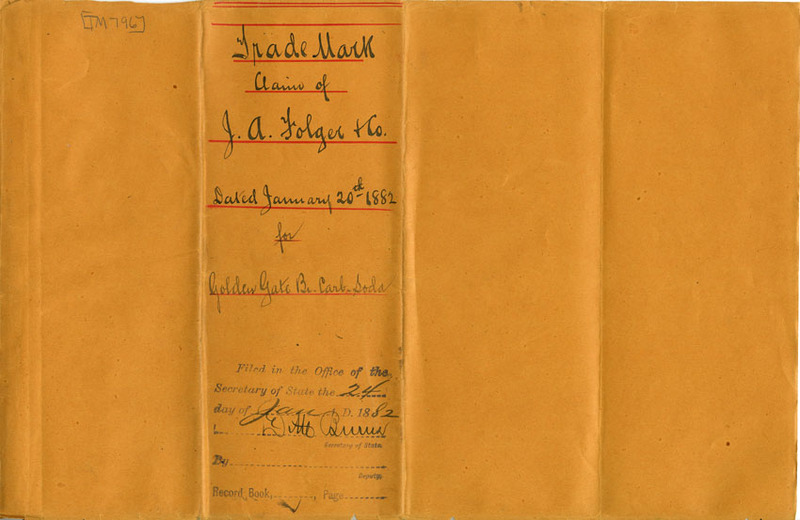 [TM 796]
Trade Mark
Claim of
J. A. Folger & Co.
Dated January 20th 1882
for
Golden Gate Bi-Carb-Soda
Filed in the Office of the
Secretary of State the 24
day of Jan A.D. 1882
Burns
Secretary of State.
By
Deputy.
Record Book, , Page